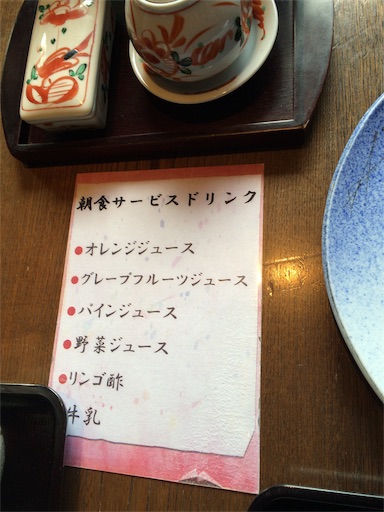 朝食サービスドリンク
●オレンジジュース
●グレープフルーツジュース
●パインジュース
●野菜ジュース
●リンゴ酢
牛乳